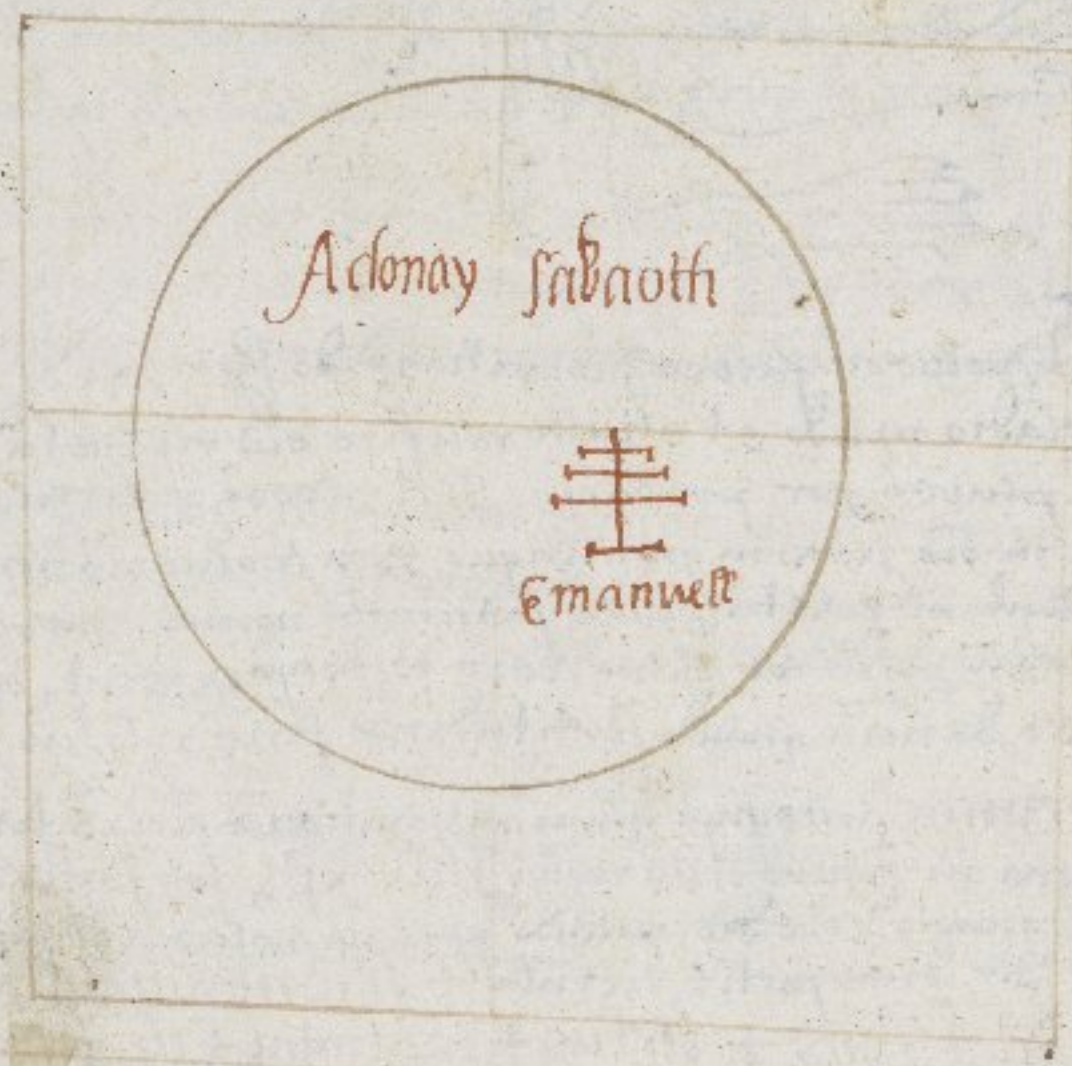 Adonay sabaoth
Emanuell